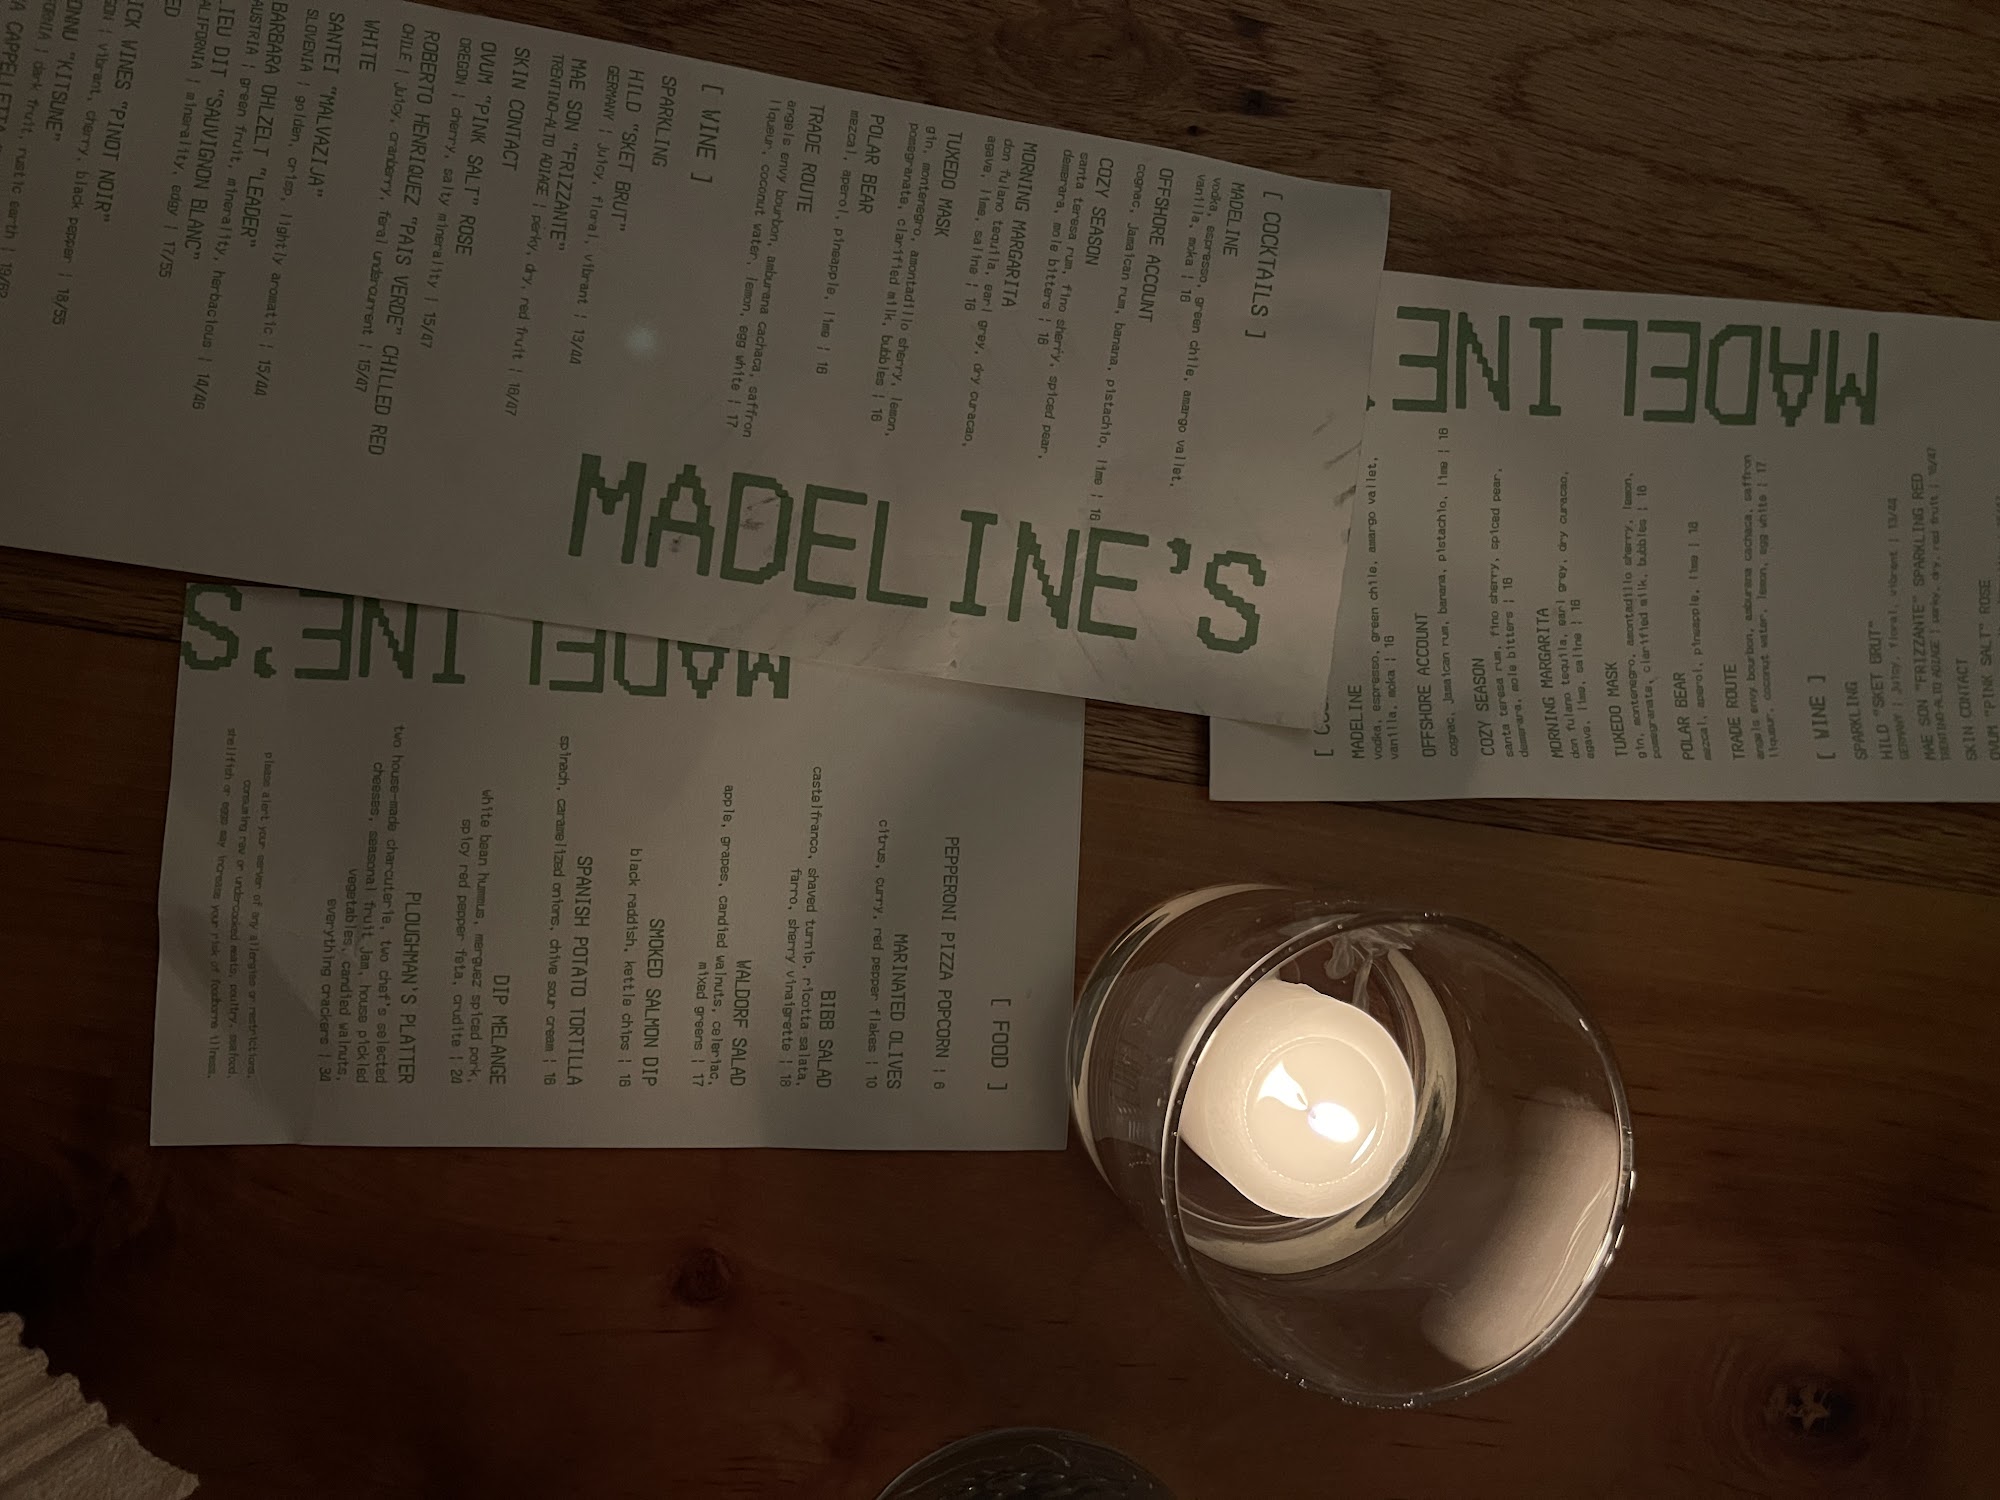 MADELINE'S
[ COCKTAILS ]
MADELINE
vodka, espresso, green chile, amargo vallet,
vanilla, moka | 16
OFFSHORE ACCOUNT
cognac, Jamaican rum, banana, pistachio, lime | 16
COZY SEASON
santa teresa rum, fino sherry, spiced pear,
demerara, mole bitters | 16
MORNING MARGARITA
don fulano tequila, earl grey, dry curacao,
agave, lime, saline | 16
TUXEDO MASK
gin, montenegro, amontadillo sherry, lemon,
pomegranate, clarified milk, bubbles | 16
POLAR BEAR
mezcal, aperol, pineapple, lime | 16
TRADE ROUTE
angels envy bourbon, amburana cachaca, saffron
liqueur, coconut water, lemon, egg white | 17
[ WINE ]
SPARKLING
HILD "SKET BRUT"
GERMANY | juicy, floral, vibrant | 13/44
MAE SON "FRIZZANTE"
TRENTINO-ALTO ADIAGE | perky, dry, red fruit | 16/47
SKIN CONTACT
OVUM "PINK SALT" ROSE
OREGON | cherry, salty minerality | 15/47
ROBERTO HENRIQUEZ "PAIS VERDE" CHILLED RED
CHILE | Juicy, cranberry, feral undercurrent | 15/47
WHITE
SANTEI "MALVAZIJA"
SLOVENIA | golden, crisp, lightly aromatic | 15/44
BARBARA OHLZELT "LEADER"
AUSTRIA | green fruit, minerality, herbacious | 14/46
LIEU DIT "SAUVIGNION BLANC"
ALIFORNIA | minerality, edgy | 17/55
ED
ICK WINES "PINOT NOIR"
GON | vibrant, cherry, black pepper | 18/55
"KITSUNE"
dark fruit, rustic earth | 19/62
MADELINE'
MADELINE
vodka, espresso, green chile, amargo vallet,
vanilla, moka | 16
OFFSHORE ACCOUNT
cognac, Jamaican rum, banana, pistachio, lime | 16
COZY SEASON
santa teresa rum, fino sherry, spiced pear,
demerara, mole bitters | 16
MORNING MARGARITA
don fulano tequila, earl grey, dry curacao,
agave, lime, saline | 16
TUXEDO MASK
gin, montenegro, amontadillo sherry, lemon,
pomegranate, clarified milk, bubbles | 16
POLAR BEAR
mezcal, aperol, pineapple, lime | 16
TRADE ROUTE
angels envy bourbon, amburana cachaca, saffron
liqueur, coconut water, lemon, egg white | 17
[ WINE ]
SPARKLING
HILD "SKET BRUT"
GERMANY | juicy, floral, vibrant | 13/44
MAE SON "FRIZZANTE" SPARKLING RED
TRENTINO-ALTO ADIAGE | perky, dry, red fruit | 16/47
SKIN CONTACT
OVUM "PINK SALT" ROSE
MADELINE'S
[ FOOD ]
PEPPERONI PIZZA POPCORN | 6
MARINATED OLIVES
citrus, curry, red pepper flakes | 10
BIBB SALAD
castelfranco, shaved turnip, ricotta salata,
farro, sherry vinaigrette | 18
WALDORF SALAD
apple, grapes, candied walnuts, celeriac,
mixed greens | 17
SMOKED SALMON DIP
black raddish, kettle chips | 16
SPANISH POTATO TORTILLA
spinach, caramelized onions, chive sour cream | 16
DIP MELANGE
white bean hummus, merguez spiced pork,
spicy red pepper feta, crudite | 24
PLOUGHMAN'S PLATTER
two house-made charcuterie, two chef's selected
cheeses, seasonal fruit jam, house pickled
vegetables, candied walnuts,
everything crackers | 34
please alert your server of any allergies or restrictions.
consuming raw or undercooked meats, poultry, seafood,
shellfish or eggs may increase your risk of foodborne illness.